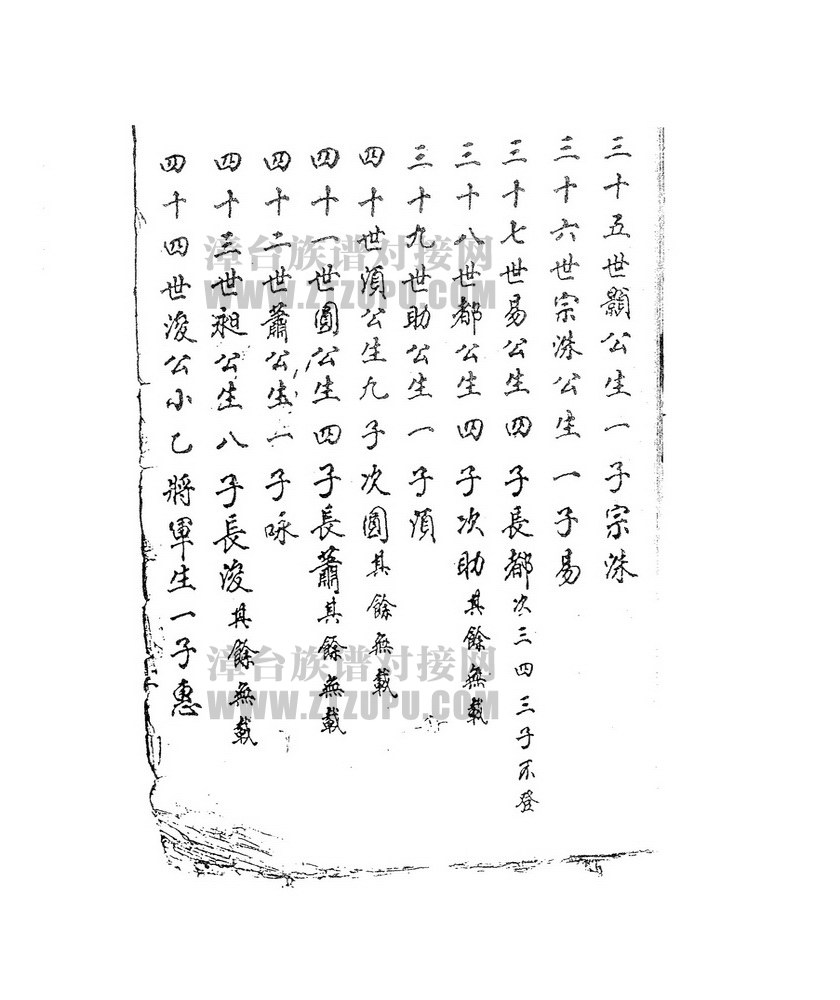 三十五世顯公生一子宗洙
三十六世宗洙公生一子易
三十七世易公生四子長都次三四三子不登
三十八世都公生四子次助其餘無載
三十九世助公生一子湏
四十世湏公生九子次圓其餘無載
四十一世圓公生四子長蕭其餘無載
四十二世蕭公生一子咏
四十三世昶公生八子長浚其餘無載
四十四世浚公小乙將軍生一子惠
漳台族谱对接网
WWW.ZTZUPU.COM
漳台族谱对接网
WWW.ZTZUPU.COM